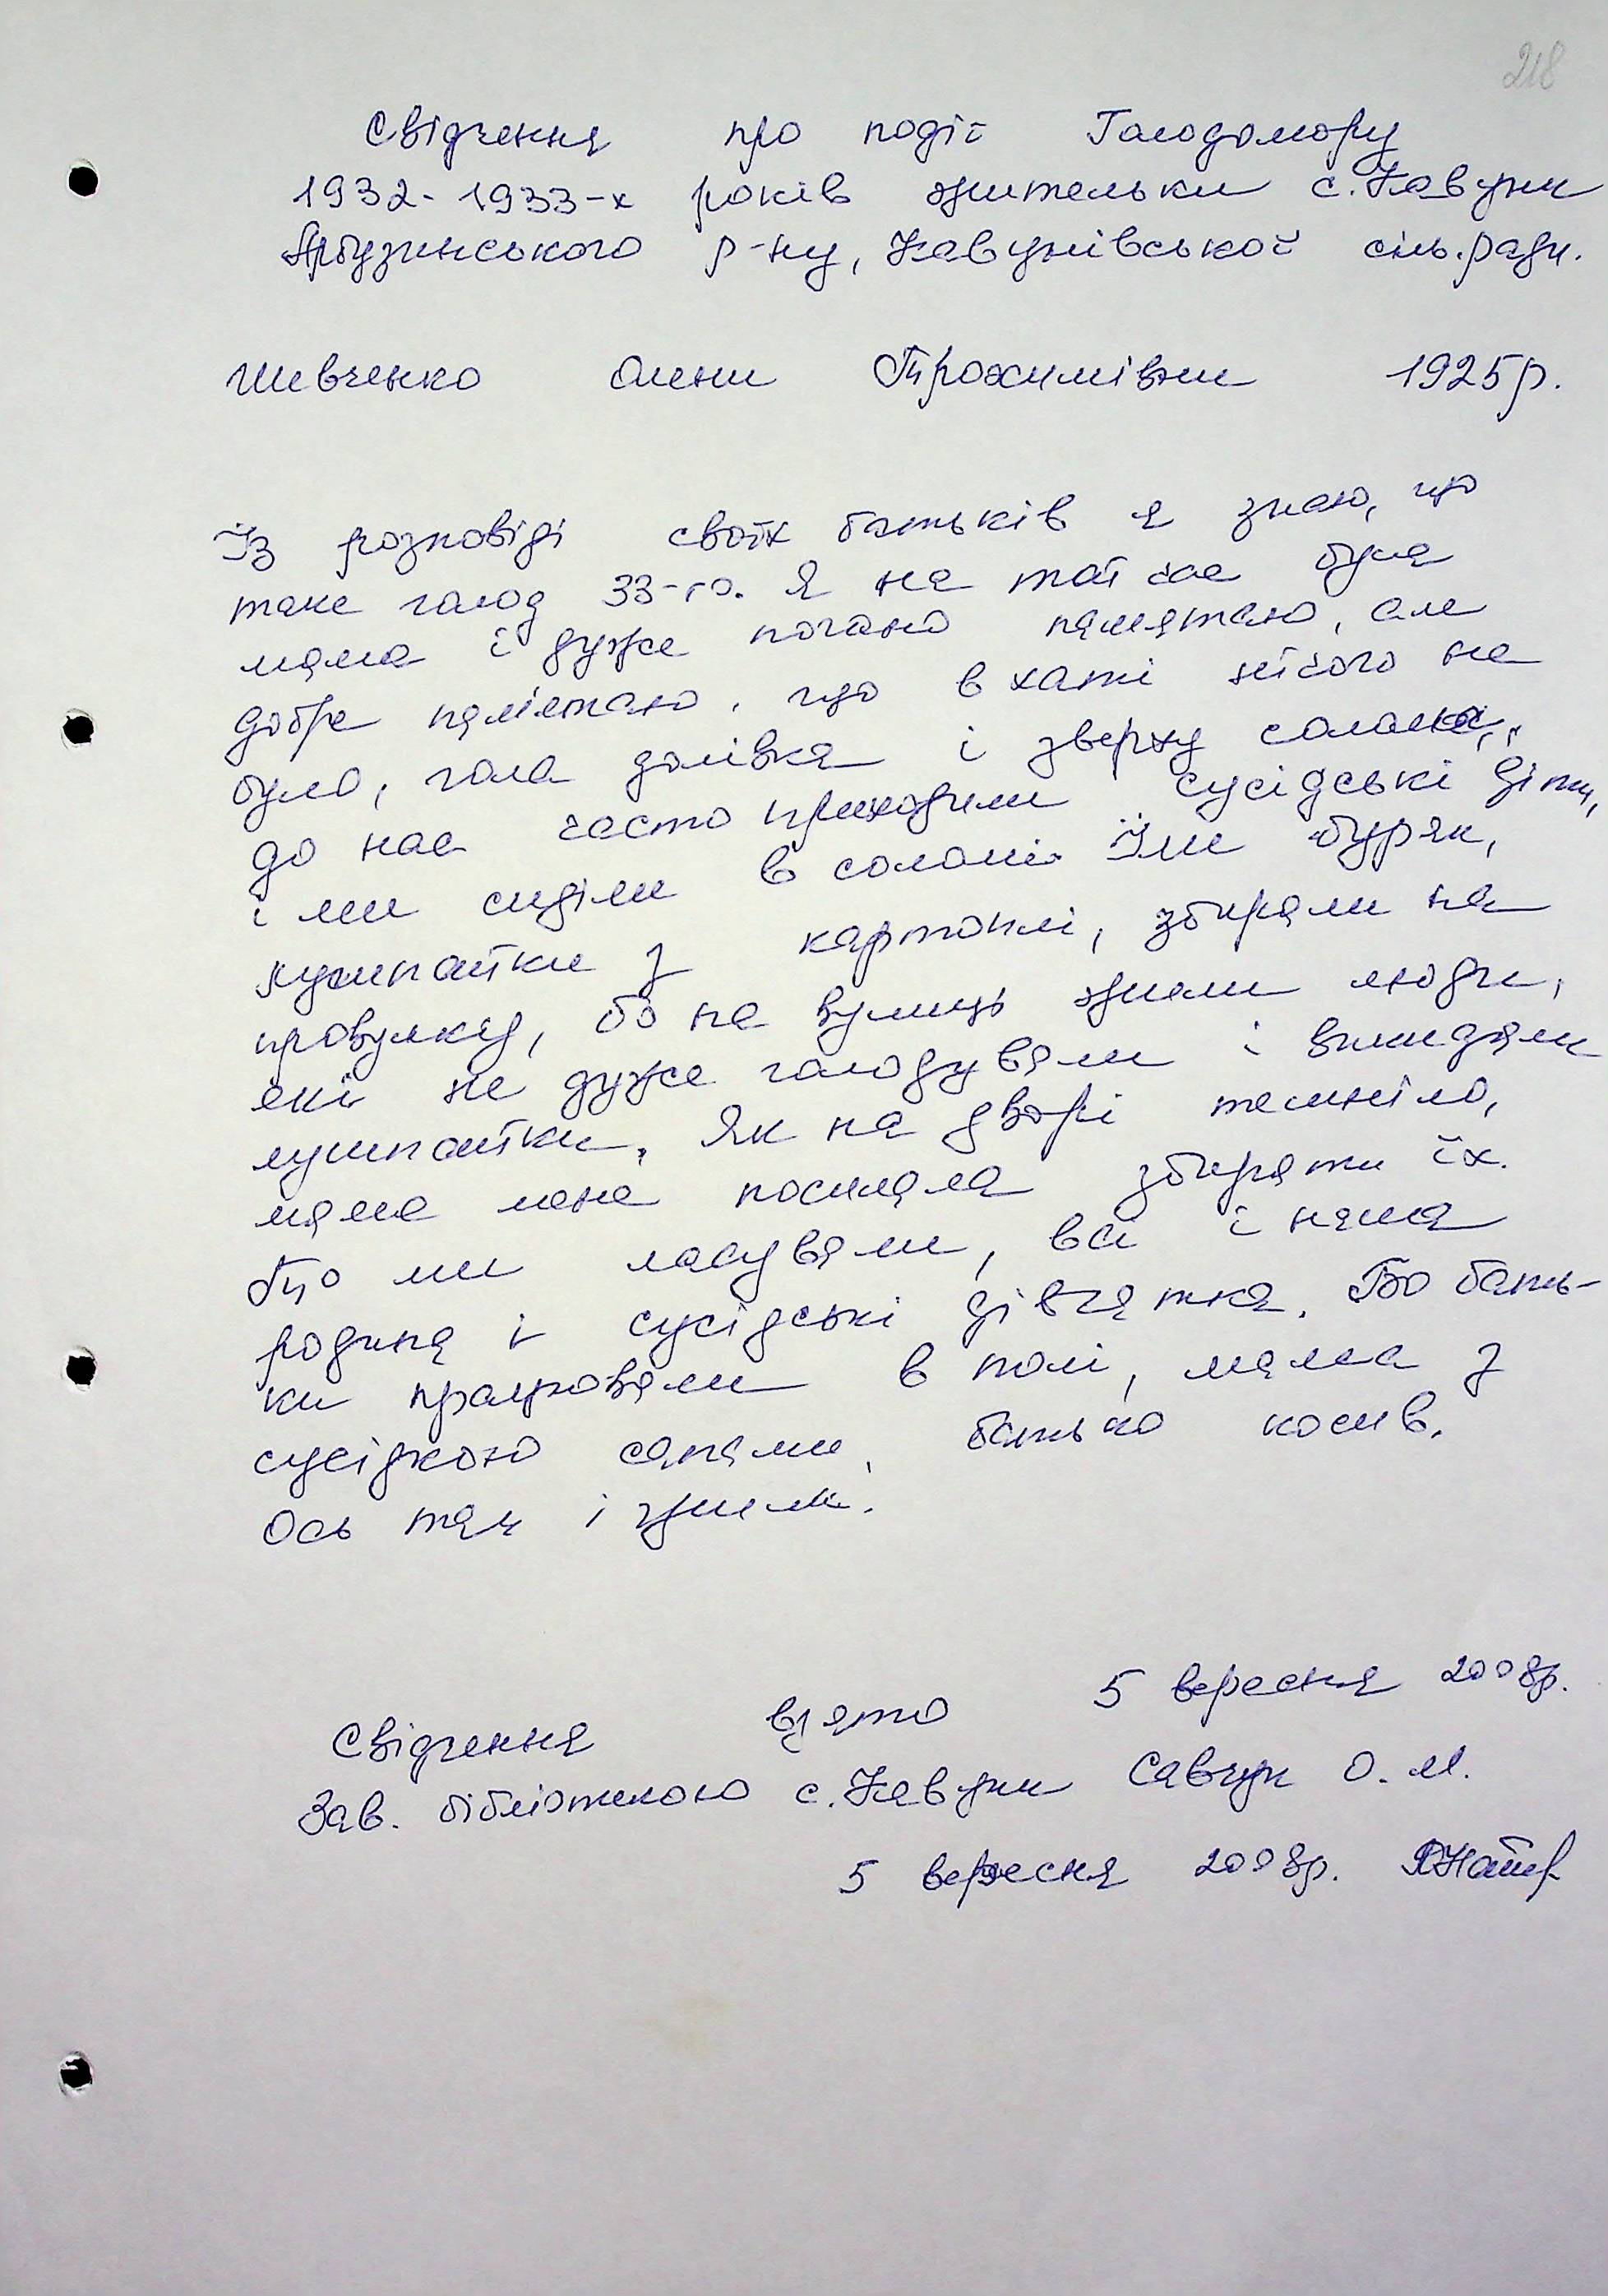 218
Свідчення про події Голодомору
1932-1933-х років жительки с. Кавуни
Арбузинського р-ну, Кавунівської сіль.ради.
Шевченко Олени Трохимівни 1925р.
Із розповіді своїх батьків я знаю, що
таке голод 33-го. Я на той час була
мала і дуже погано памятаю, але
добре памятаю, що в хаті нічого не
було, гола долівка і зверху солома,
до нас часто приходили сусідські діти,
і ми сиділи в соломі. Їли буряк,
лушпайки з картоплі, збирали на
провулку, бо на вулиці жили люди,
які не дуже голодували і викидали
лушпайки. Як на дворі темніло,
мама мене посилала збирати їх.
Що ми ласували, всі і наша
родина і сусідські дівчатка. Бо бать-
ки працювали в полі, мама з
сусідкою сапали, батько косив.
Ось так і жили.
Свідчення взято 5 вересня 2008р.
Зав. бібліотекою с. Кавуни Савчук О. М.
5 вересня 2008р.